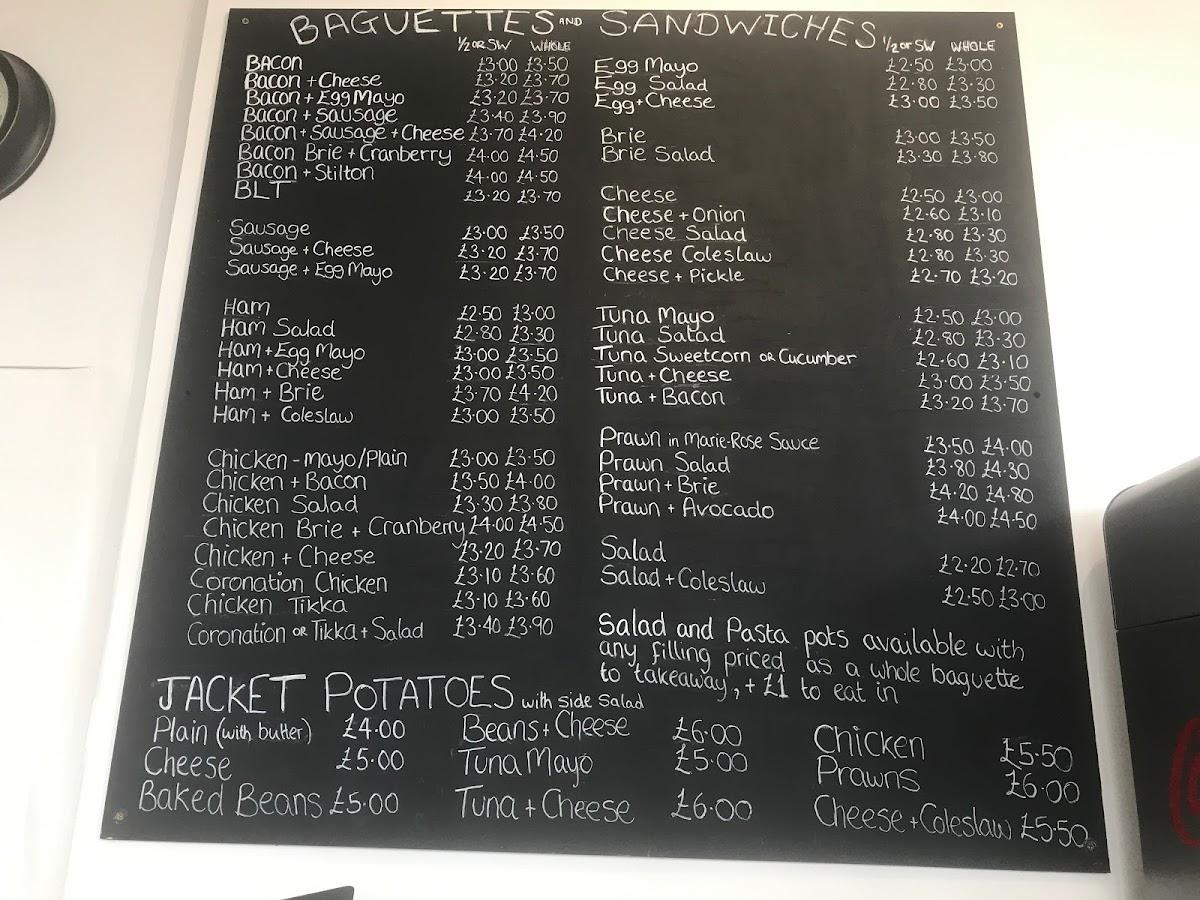 BAGUETTES AND SANDWICHES
1/2 OR SW WHOLE
BACON £3.00 £3.50
Bacon + Cheese £3.20 £3.70
Bacon + Egg Mayo £3.20 £3.70
Bacon + Sausage £3.40 £3.90
Bacon + Sausage + Cheese £3.70 £4.20
Bacon Brie + Cranberry £4.00 £4.50
Bacon + Stilton £4.00 £4.50
BLT £3.20 £3.70
Sausage £3.00 £3.50
Sausage + Cheese £3.20 £3.70
Sausage + Egg Mayo £3.20 £3.70
Ham £2.50 £3.00
Ham Salad £2.80 £3.30
Ham + Egg Mayo £3.00 £3.50
Ham + Cheese £3.00 £3.50
Ham + Brie £3.70 £4.20
Ham + Coleslaw £3.00 £3.50
Chicken - Mayo/Plain £3.00 £3.50
Chicken + Bacon £3.50 £4.00
Chicken Salad £3.30 £3.80
Chicken Brie + Cranberry £4.00 £4.50
Chicken + Cheese £3.20 £3.70
Coronation Chicken £3.10 £3.60
Chicken Tikka £3.10 £3.60
Coronation OR Tikka + Salad £3.40 £3.90
1/2 OR SW WHOLE
Egg Mayo £2.50 £3.00
Egg Salad £2.80 £3.30
Egg + Cheese £3.00 £3.50
Brie £3.00 £3.50
Brie Salad £3.30 £3.80
Cheese £2.50 £3.00
Cheese + Onion £2.60 £3.10
Cheese Salad £2.80 £3.30
Cheese Coleslaw £2.80 £3.30
Cheese + Pickle £2.70 £3.20
Tuna Mayo £2.50 £3.00
Tuna Salad £2.80 £3.30
Tuna Sweetcorn OR Cucumber £2.60 £3.10
Tuna + Cheese £3.00 £3.50
Tuna + Bacon £3.20 £3.70
Prawn in Marie-Rose Sauce £3.50 £4.00
Prawn Salad £3.80 £4.30
Prawn + Brie £4.20 £4.80
Prawn + Avocado £4.00 £4.50
Salad £2.20 £2.70
Salad + Coleslaw £2.50 £3.00
Salad and Pasta pots available with
any filling priced as a whole baguette
to takeaway, + £1 to eat in
JACKET POTATOES with side Salad
Plain (with butter) £4.00
Cheese £5.00
Baked Beans £5.00
Beans + Cheese £6.00
Tuna Mayo £5.00
Tuna + Cheese £6.00
Chicken £5.50
Prawns £6.00
Cheese + Coleslaw £5.50